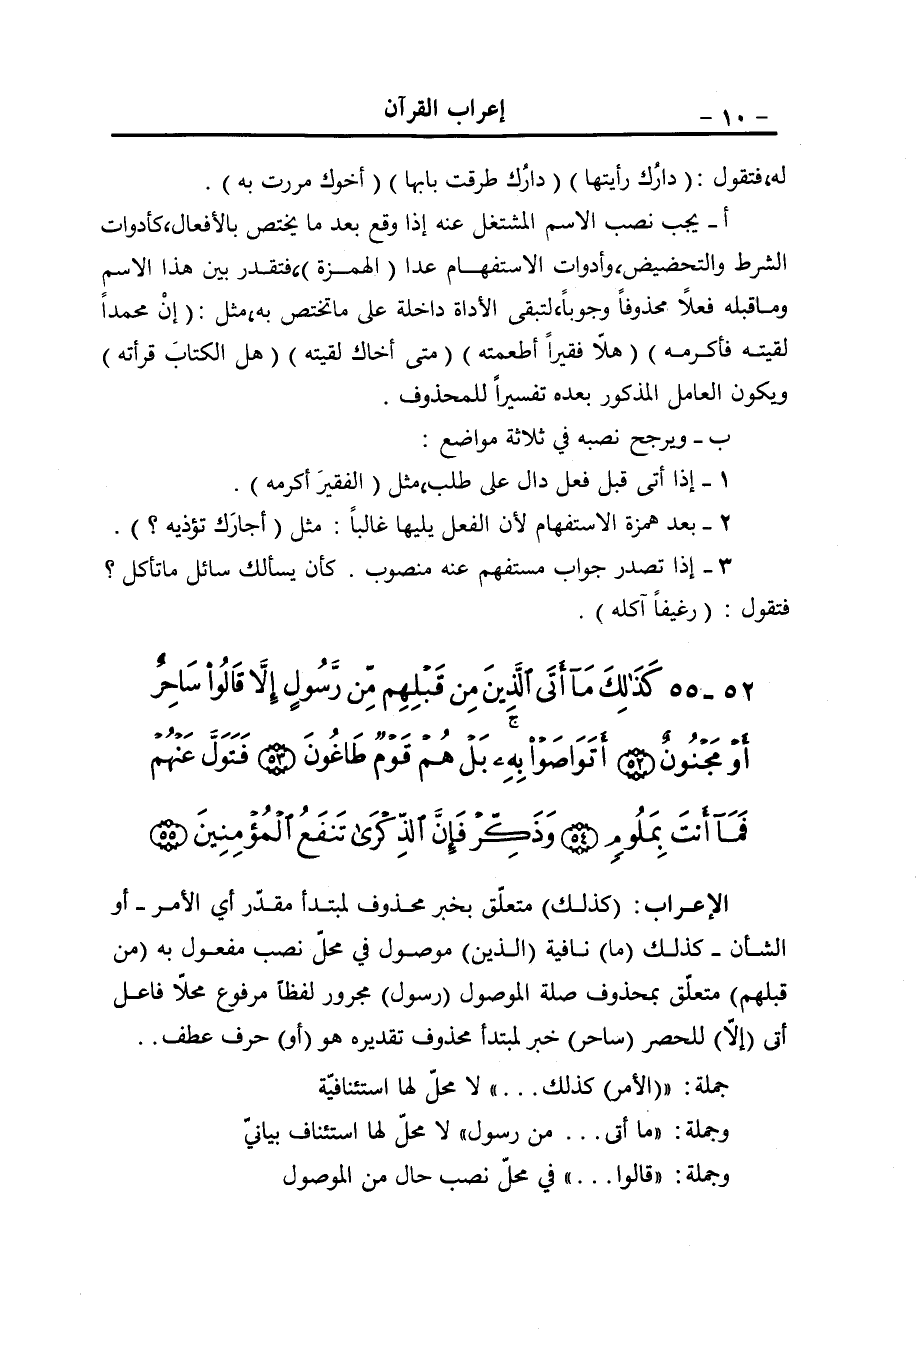 - ١٠ - إعراب القرآن
له،فتقول :( دارُك رأيتها ) ( دارُك طرقت بابها ) ( أخوك مررت به ) .
أ ـ يجب نصب الاسم المشتغل عنه إذا وقع بعد ما يختص بالأفعال،كأدوات
الشرط والتحضيض،وأدوات الاستفهام عدا ( الهمزة )،فتقدر بين هذا الاسم
وماقبله فعلاً محذوفاً وجوباً،لتبقى الأداة داخلة على ماتختص به،مثل :( إنْ محمداً
لقيته فأكرمه ) ( هلاّ فقيراً أطعمته ) (متى أخاك لقيته ) ( هل الكتابَ قرأته )
ويكون العامل المذكور بعده تفسيراً للمحذوف .
ب ـ ويرجح نصبه في ثلاثة مواضع :
١ ـ إذا أتى قبل فعل دال على طلب،مثل ( الفقيرَ أكرمه ) .
٢ ـ بعد همزة الاستفهام لأن الفعل يليها غالباً : مثل ( أجارَك تؤذيه ؟ ) .
٣ ـ إذا تصدر جواب مستفهم عنه منصوب . كأن يسألك سائل ماتأكل ؟
فتقول : ( رغيفاً آكله ) .
٥٢ ـ ٥٥ كَذَٰلِكَ مَآ أَتَى ٱلَّذِينَ مِن قَبْلِهِم مِّن رَّسُولٍ إِلَّا قَالُوا۟ سَاحِرٌ
أَوْ مَجْنُونٌ ﴿٥٢﴾ أَتَوَاصَوْا۟ بِهِۦ ۚ بَلْ هُمْ قَوْمٌ طَاغُونَ ﴿٥٣﴾ فَتَوَلَّ عَنْهُمْ
فَمَآ أَنتَ بِمَلُومٍ ﴿٥٤﴾ وَذَكِّرْ فَإِنَّ ٱلذِّكْرَىٰ تَنفَعُ ٱلْمُؤْمِنِينَ ﴿٥٥﴾
الإعراب: (كذلك) متعلّق بخبر محذوف لمبتدأ مقدّر أي الأمر ـ أو
الشأن ـ كذلك (ما) نافية (الذين) موصول في محلّ نصب مفعول به (من
قبلهم) متعلّق بمحذوف صلة الموصول (رسول) مجرور لفظاً مرفوع محلاّ فاعل
أتى (إلّا) للحصر (ساحر) خبر لمبتدأ محذوف تقديره هو (أو) حرف عطف . .
جملة: «(الأمر) كذلك. . .» لا محلّ لها استئنافيّة
وجملة: «ما أتى. . . من رسول» لا محلّ لها استئناف بيانيّ
وجملة: «قالوا. . .» في محلّ نصب حال من الموصول